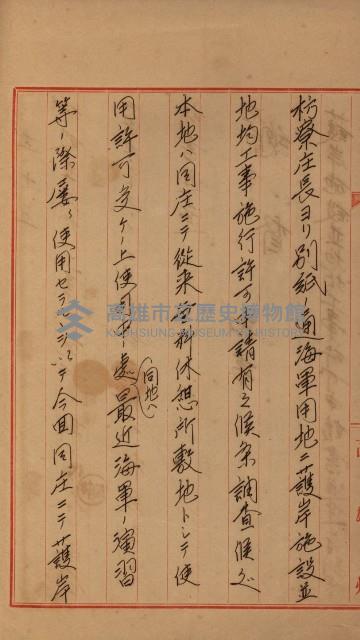 枋寮庄長ヨリ別紙ノ通海軍用地ニ護岸施設並
地均工事施行許可申請有之候条調査候処
本地ハ同庄ニテ従来無料休憩所敷地トシテ使
用許可受ケノ上使用ノ処最近海軍ノ演習
同地ハ
等ノ際屡々使用セラ ニテ今回同庄ニテ護岸
高雄市立歷史博物館
KAOHSIUNG MUSEUM OF HISTORY